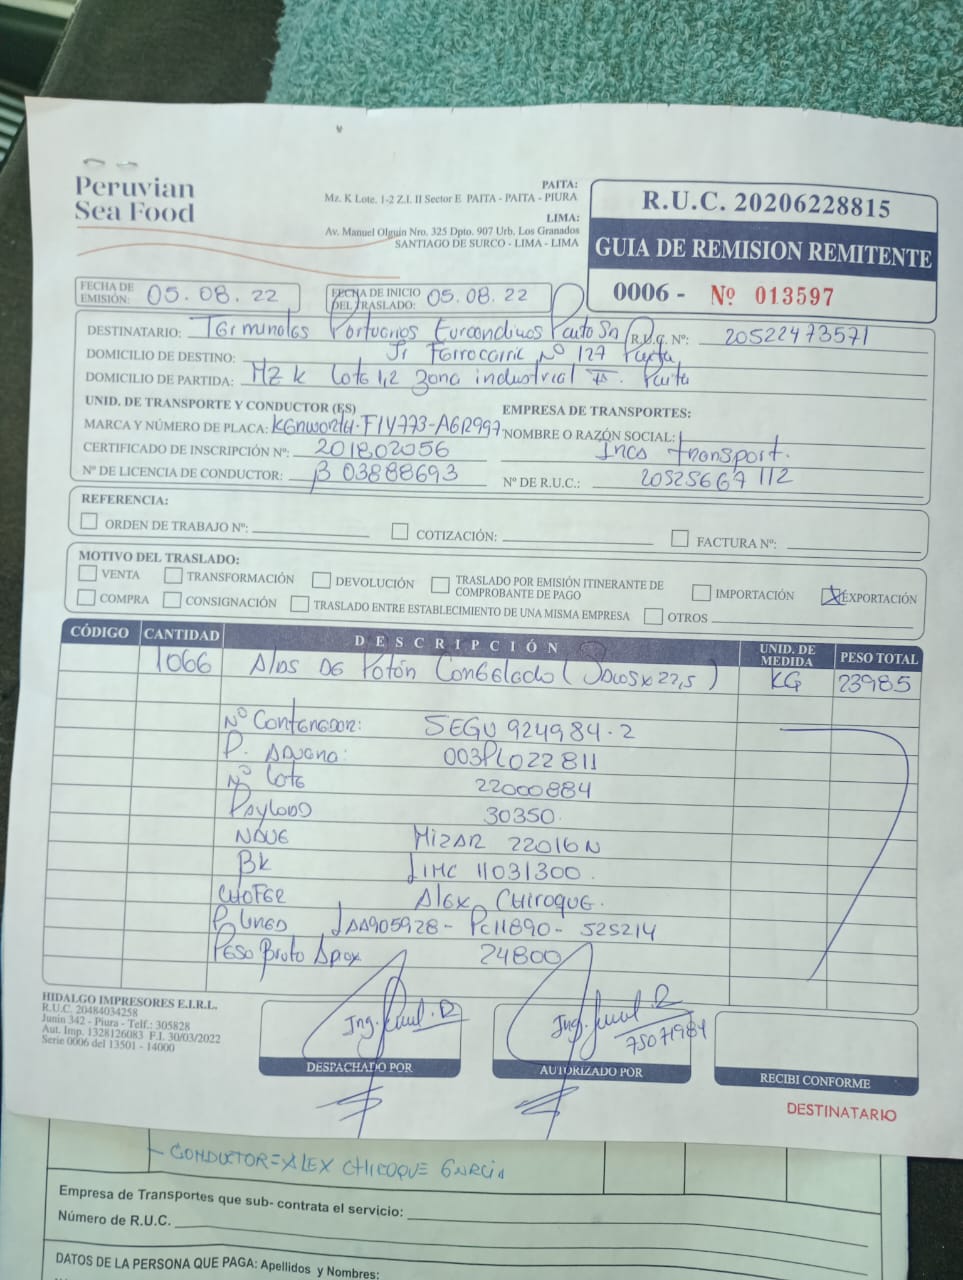 Peruvian
Sea Food
PAITA:
Mz. K Lote. 1-2 Z.I. II Sector E PAITA - PAITA - PIURA
LIMA:
Av. Manuel Olguin Nro. 325 Dpto. 907 Urb. Los Granados
SANTIAGO DE SURCO - LIMA - LIMA
R.U.C. 20206228815
GUIA DE REMISION REMITENTE
0006 - Nº 013597
FECHA DE EMISIÓN: 05.08.22
FECHA DE INICIO DEL TRASLADO: 05.08.22
DESTINATARIO: Terminales Portuarios Euroandinos Paita Sa R.U.C. Nº: 20522473571
DOMICILIO DE DESTINO: Jr Ferrocarril Nº 127 Paita
DOMICILIO DE PARTIDA: Mz K Lote 1,2 Zona industrial II. Paita
UNID. DE TRANSPORTE Y CONDUCTOR (ES)
MARCA Y NÚMERO DE PLACA: Kenworth-F1Y773-A6R997
CERTIFICADO DE INSCRIPCIÓN Nº: 201802056
Nº DE LICENCIA DE CONDUCTOR: B 03888693
EMPRESA DE TRANSPORTES:
NOMBRE O RAZÓN SOCIAL:
Inca transport.
Nº DE R.U.C.: 20525667112
REFERENCIA:
ORDEN DE TRABAJO Nº: COTIZACIÓN: FACTURA Nº:
MOTIVO DEL TRASLADO:
VENTA TRANSFORMACIÓN DEVOLUCIÓN TRASLADO POR EMISIÓN ITINERANTE DE COMPROBANTE DE PAGO IMPORTACIÓN EXPORTACIÓN
COMPRA CONSIGNACIÓN TRASLADO ENTRE ESTABLECIMIENTO DE UNA MISMA EMPRESA OTROS
CÓDIGO CANTIDAD DESCRIPCIÓN UNID. DE MEDIDA PESO TOTAL
1066 Alas De Potón Congelado (Sacos x 22,5) KG 23985
Nº Contenedor: SEGU 924984-2
P. Aduana: 003PL022811
Nº Lote 22000884
Payload 30350
Nave Mizar 22016N
Bk LIMC 11031300.
Chofer Alex Chiroque.
P. Linea LAA905928- PC11890- 525214
Peso Bruto Apox 24800
HIDALGO IMPRESORES E.I.R.L.
R.U.C. 20484034258
Junin 342 - Piura - Telf.: 305828
Aut. Imp. 1328126083 F.I. 30/03/2022
Serie 0006 del 13501 - 14000
Ing.
DESPACHADO POR
Ing.
75071984
AUTORIZADO POR
RECIBI CONFORME
DESTINATARIO
- CONDUCTOR = ALEX CHIROQUE GARCIA
Empresa de Transportes que sub- contrata el servicio:
Número de R.U.C.
DATOS DE LA PERSONA QUE PAGA: Apellidos y Nombres: